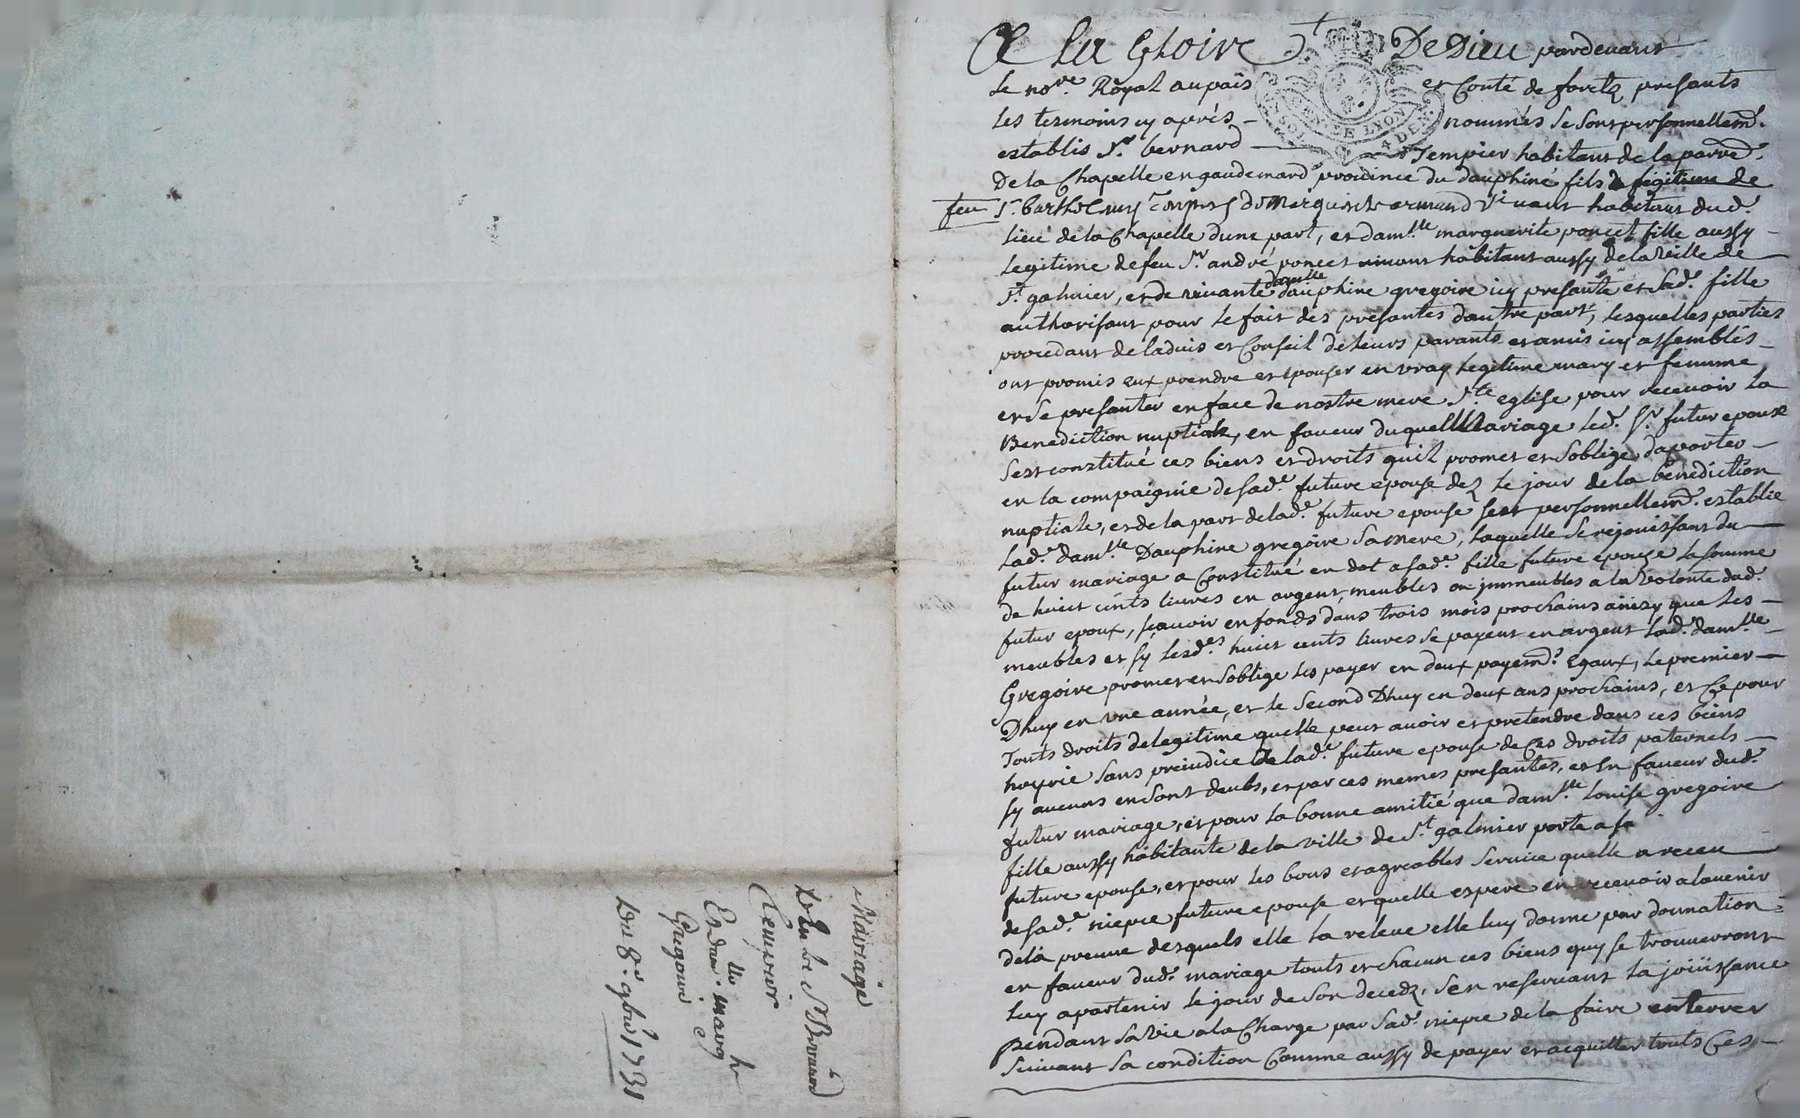 A La Gloire De Dieu pardevant
Le no.re Royal au païs et Conté de foretz presants
Les tesmoins cy aprés nommés se sont personnellem.t
establis S.r bernard Tempier habitant de la parre.
De la Chapelle en gaudemard province du dauphiné fils legitime de
feu S.r barthelemy et armand vivant habitant dud.
Lieu de la Chapelle d'une part, et dam.lle marguerite poncet fille aussy
Legitime de feu S.r andré poncet vivant habitant aussy de la Ville de
S.t galmier, et de vivante dam.lle dauphine gregoire icy presante et Sad.e fille
authorisant pour le fait des presantes dautre part, Lesquelles parties
procedant de ladvis et Conseil de Leurs parants et amis icy assemblés
ont promis eux prendre et epouser en vray Legitime mary et femme
et Se presanter en face de nostre mere S.te eglise pour recevoir La
Benediction nuptiale, en faveur duquel Mariage Led. S.r futur epoux
Sest constitué ces biens et droits quil promet et Soblige daporter
en la compaignie de Sad.e future epouse dez Le jour de la benediction
nuptiale, et de la part de lad.e future epouse Sest personnellem.t establie
Lad.e dam.lle Dauphine gregoire Sa mere, Laquelle Se rejouissant du
futur mariage a Constitué en dot a Sad.e fille future epouze La somme
de huict cents livres en argent, meubles ou immeubles a la Volonte dud.
futur epoux, sçavoir en fonds dans trois mois prochains ainsy que Les
meubles et Sy Lesd.es huict cents livres se payent en argent Lad.e dam.lle
Gregoire promet et Soblige Les payer en deux payem.ts Egaux, Le premier
Dhuy en une année, et le Second Dhuy en deux ans prochains, et Ce pour
Touts droits de legitime quelle peut avoir et pretendre dans ces biens
hoyrie Sans prejudice De Lad.e future epouse de Ces droits paternels
Sy aucuns en Sont deubs, et par ces memes presantes, et En faveur dud.
futur mariage, et pour La bonne amitié que dam.lle Louise gregoire
fille aussy habitante de la ville de S.t galmier porte a sa
future epouse, et pour Les bons et agreables Service quelle a receu
de Sad.e niepce future epouse et quelle espere en recevoir a lavenir
de la preuve desquels elle La releve elle luy donne par donnation
en faveur dud. mariage touts et chacun ces biens quy se trouveront
Luy apartenir Le jour de Son decedz, Sen reservant La joüissance
Pendant Sa Vie a la Charge par Sad.e niepce de la faire enterrer
Suivant Sa condition Comme aussy de payer et acquitter touts Ces
Mariage
de S.r Bernard
Tempier
Et dam.lle marg.te
Gregoire
Du 8.e 9bre 1731